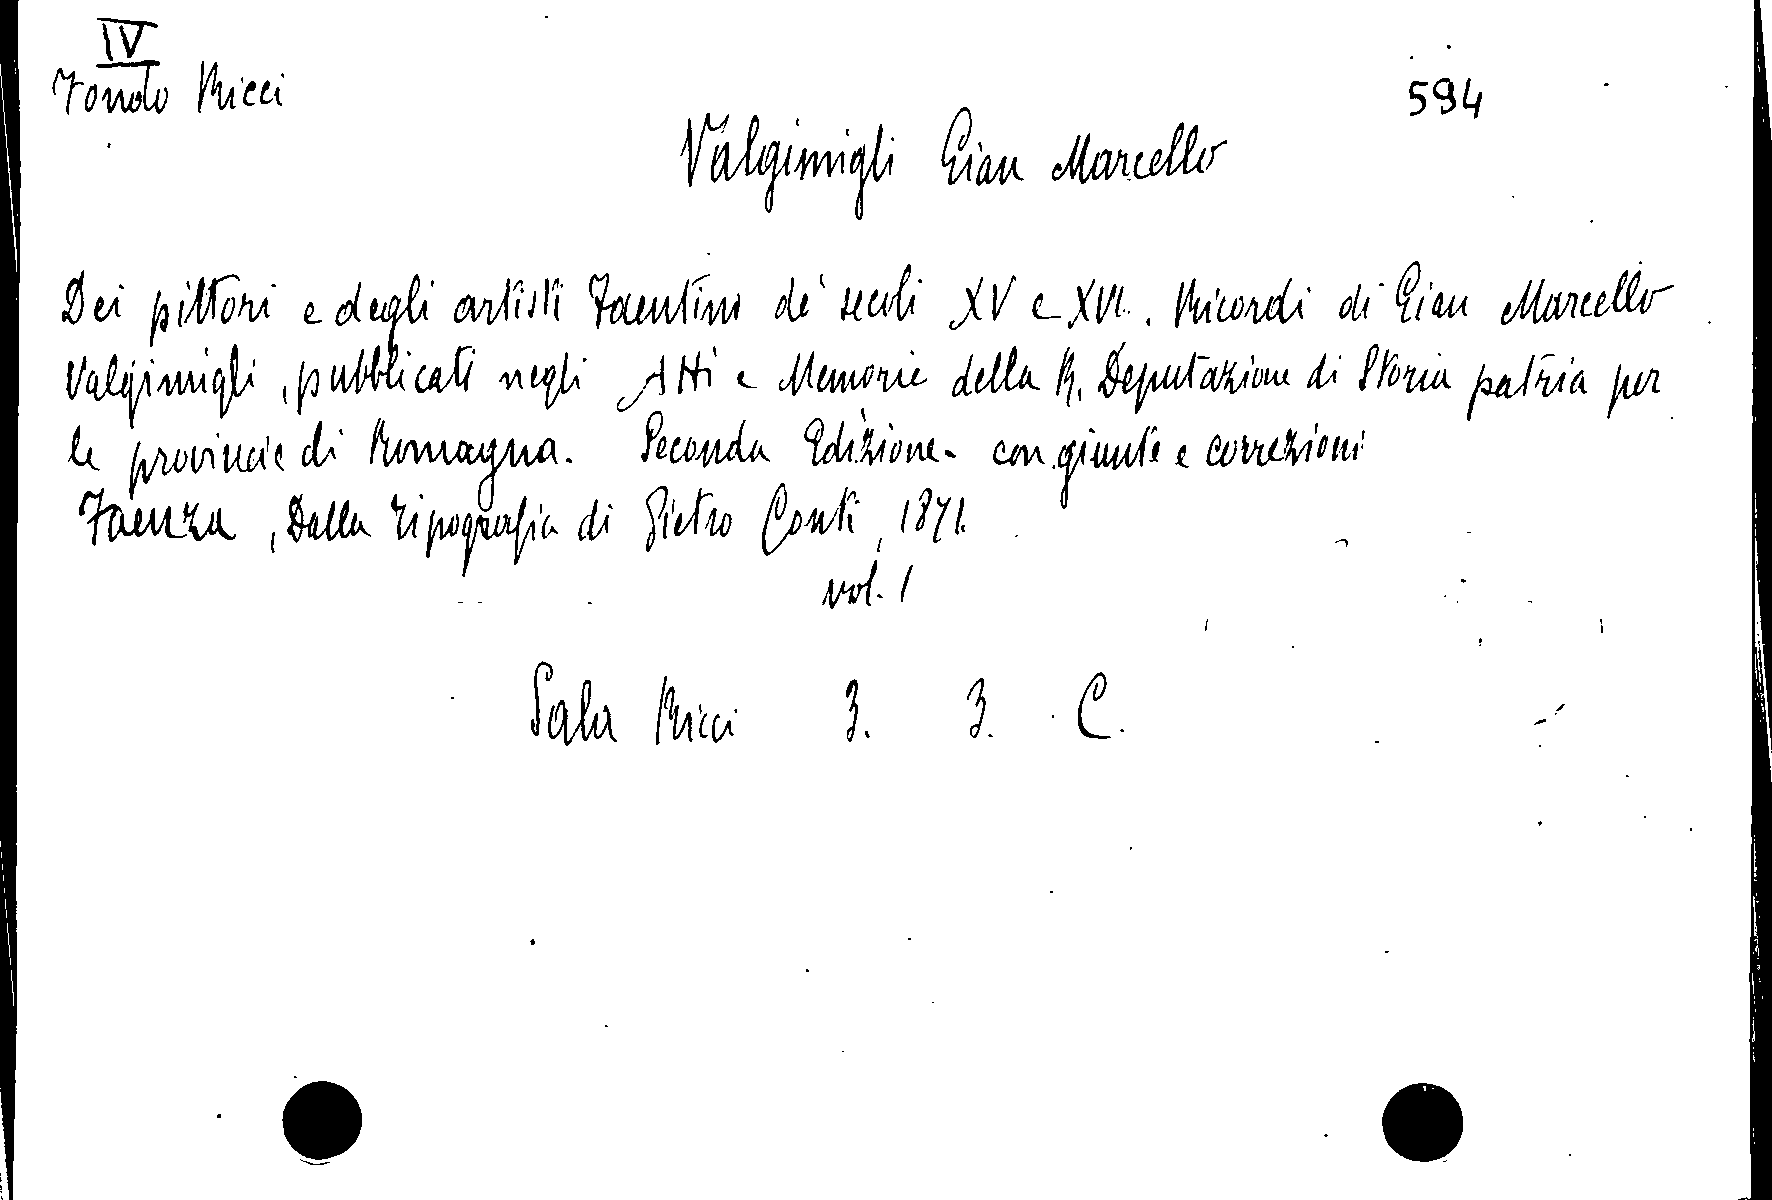 IV
Fondo Ricci
594
Valgimigli Gian Marcello
Dei pittori e degli artisti Faentini de' secoli XV e XVI. Ricordi di Gian Marcello
Valgimigli, pubblicati negli Atti e Memorie della R. Deputazione di Storia patria per
le provincie di Romagna. Seconda Edizione. con giunte e correzioni
Faenza, Dalla Tipografia di Pietro Conti, 1871.
vol. 1
Sala Ricci 3. 3. C.